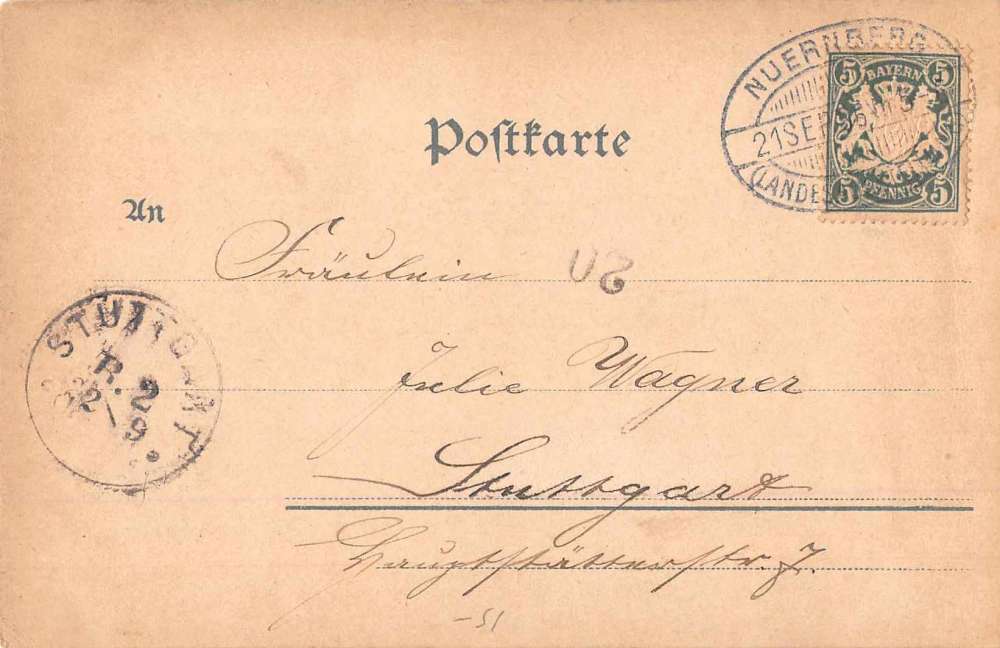 NUERNBERG
21 SEP
(LANDES
5 BAYERN 5
5 PFENNIG 5
Postkarte
An
Fräulein
Julie Wagner
Stuttgart
Hauptstätterstr. 7.
STUTTGART
B. 2
22/9